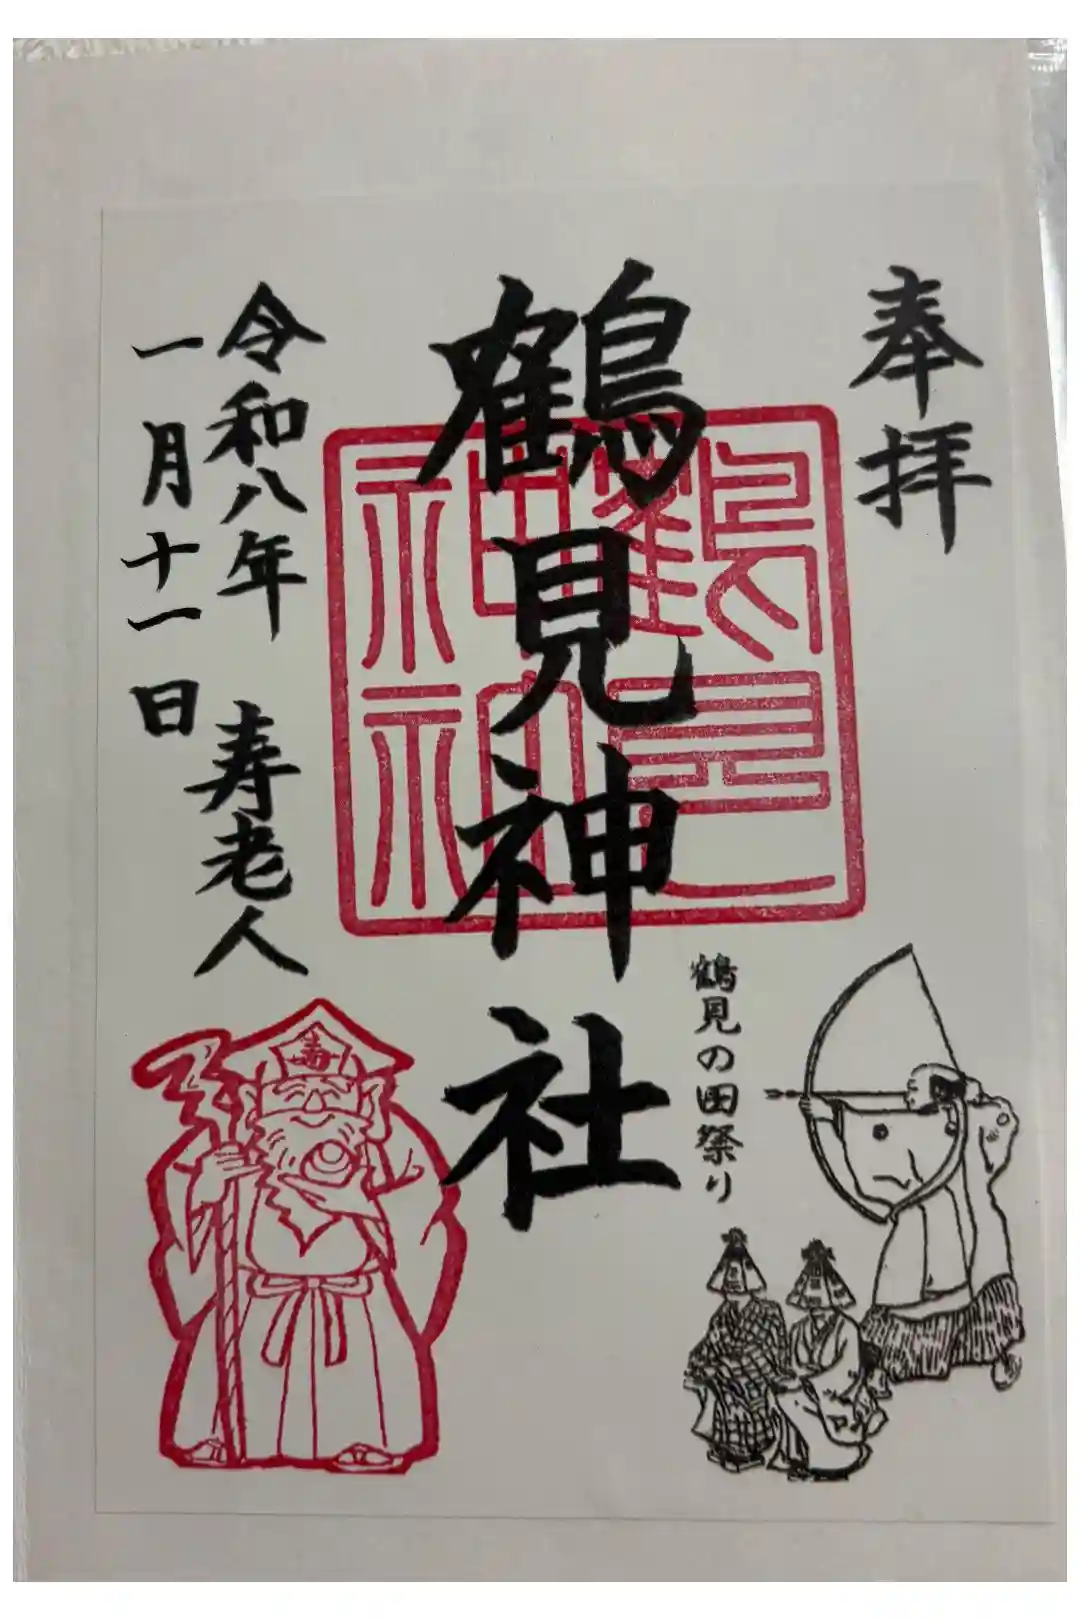 奉拝
鶴見神社
鶴見神社
鶴見の田祭り
令和八年
寿老人
一月十一日
寿